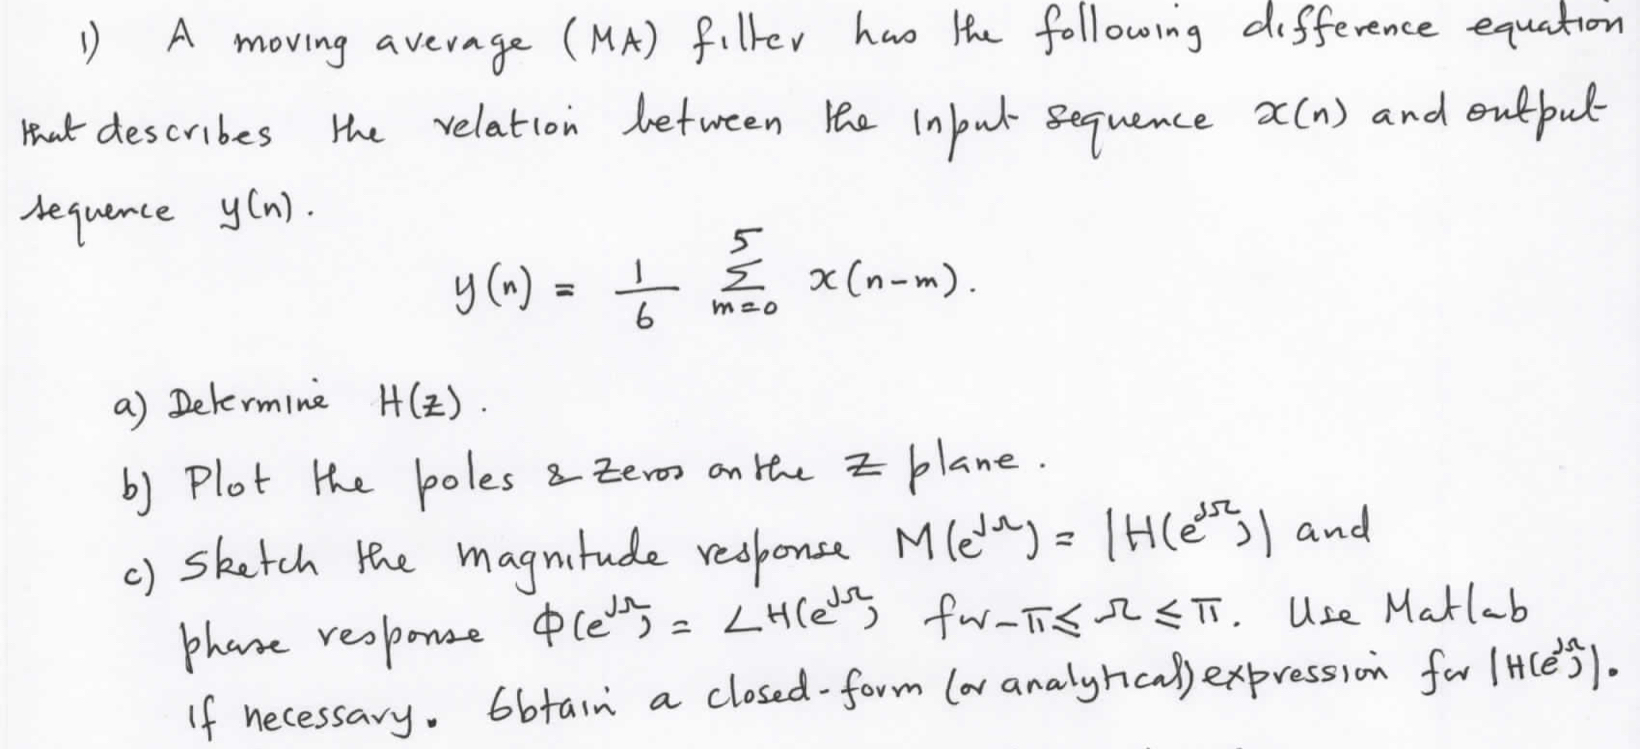 1) A moving average (MA) filter has the following difference equation
that describes the relation between the input sequence x(n) and output
sequence y(n).
y(n) = 1/6 5Σm=0 x(n-m).
a) Determine H(z).
b) Plot the poles & zeros on the z plane.
c) Sketch the magnitude response M(e^jΩ) = |H(e^jΩ)| and
phase response Φ(e^jΩ) = ∠H(e^jΩ) for -π ≤ Ω ≤ π. Use Matlab
if necessary. Obtain a closed-form (or analytical) expression for |H(e^jΩ)|.